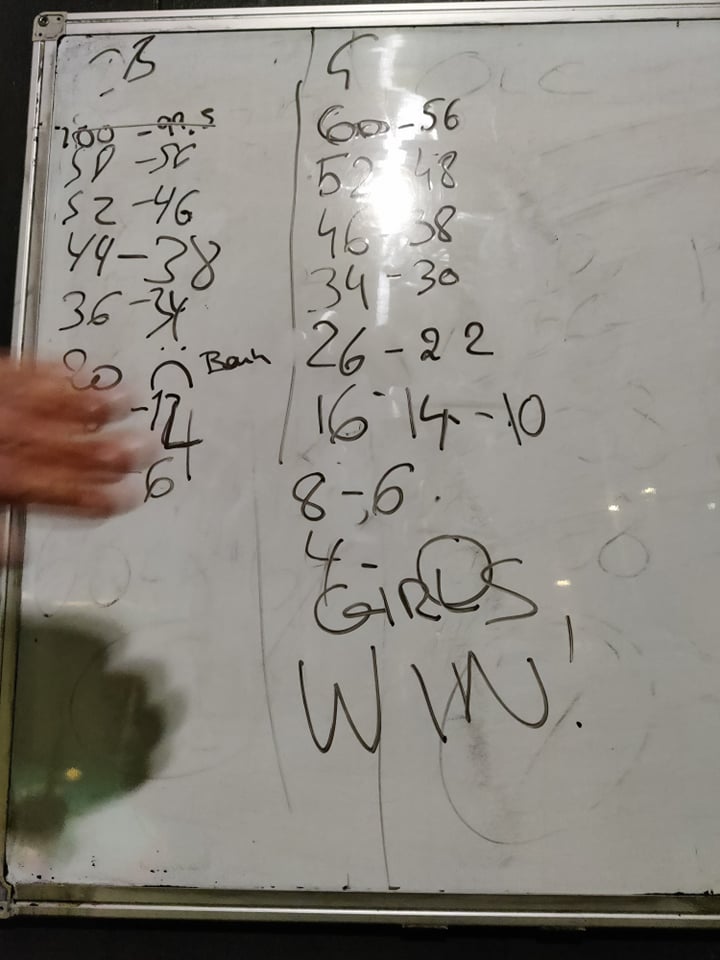 B
100 - 98.5
58 - 56
52 - 46
44 - 38
36 - 34
20 Bauh
- 12
4
6
G
60 - 56
52 - 48
46 - 38
34 - 30
26 - 22
16 - 14 - 10
8 - 6.
4 - 0
GIRLS
WIN!